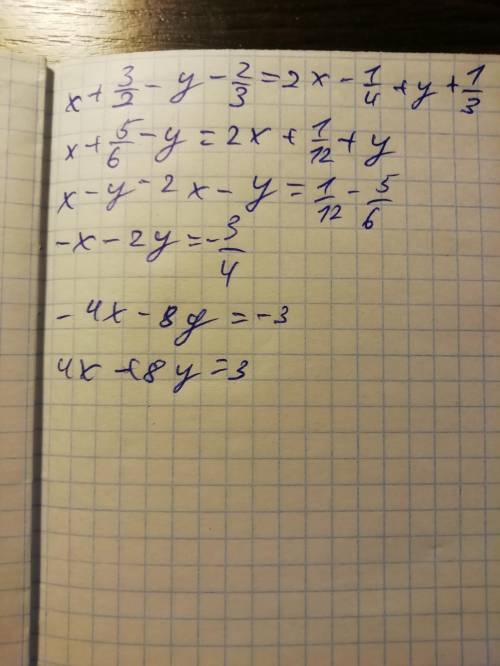 x + 3/2 - y - 2/3 = 2x - 1/4 + y + 1/3
x + 5/6 - y = 2x + 1/12 + y
x - y - 2x - y = 1/12 - 5/6
-x - 2y = -3/4
-4x - 8y = -3
4x + 8y = 3